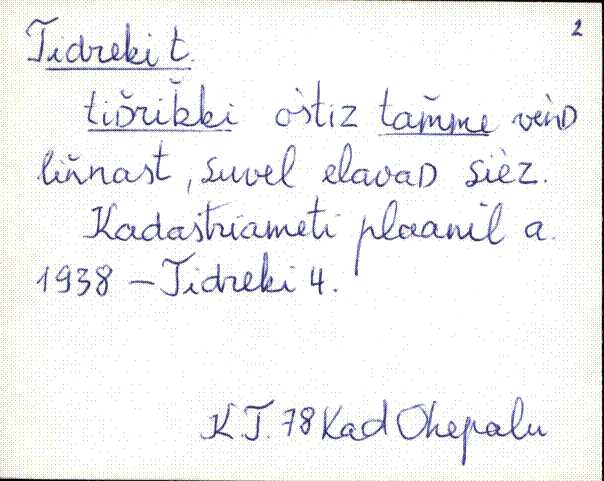 2
Tidreki t.
tiďrik̆ki òstiz tam̆me vèńD
liňnast, suvel elavaD sièz.
Kadastriameti plaanil a.
1938 – Tidreki 4.
K.T. 78 Kad Ohepalu